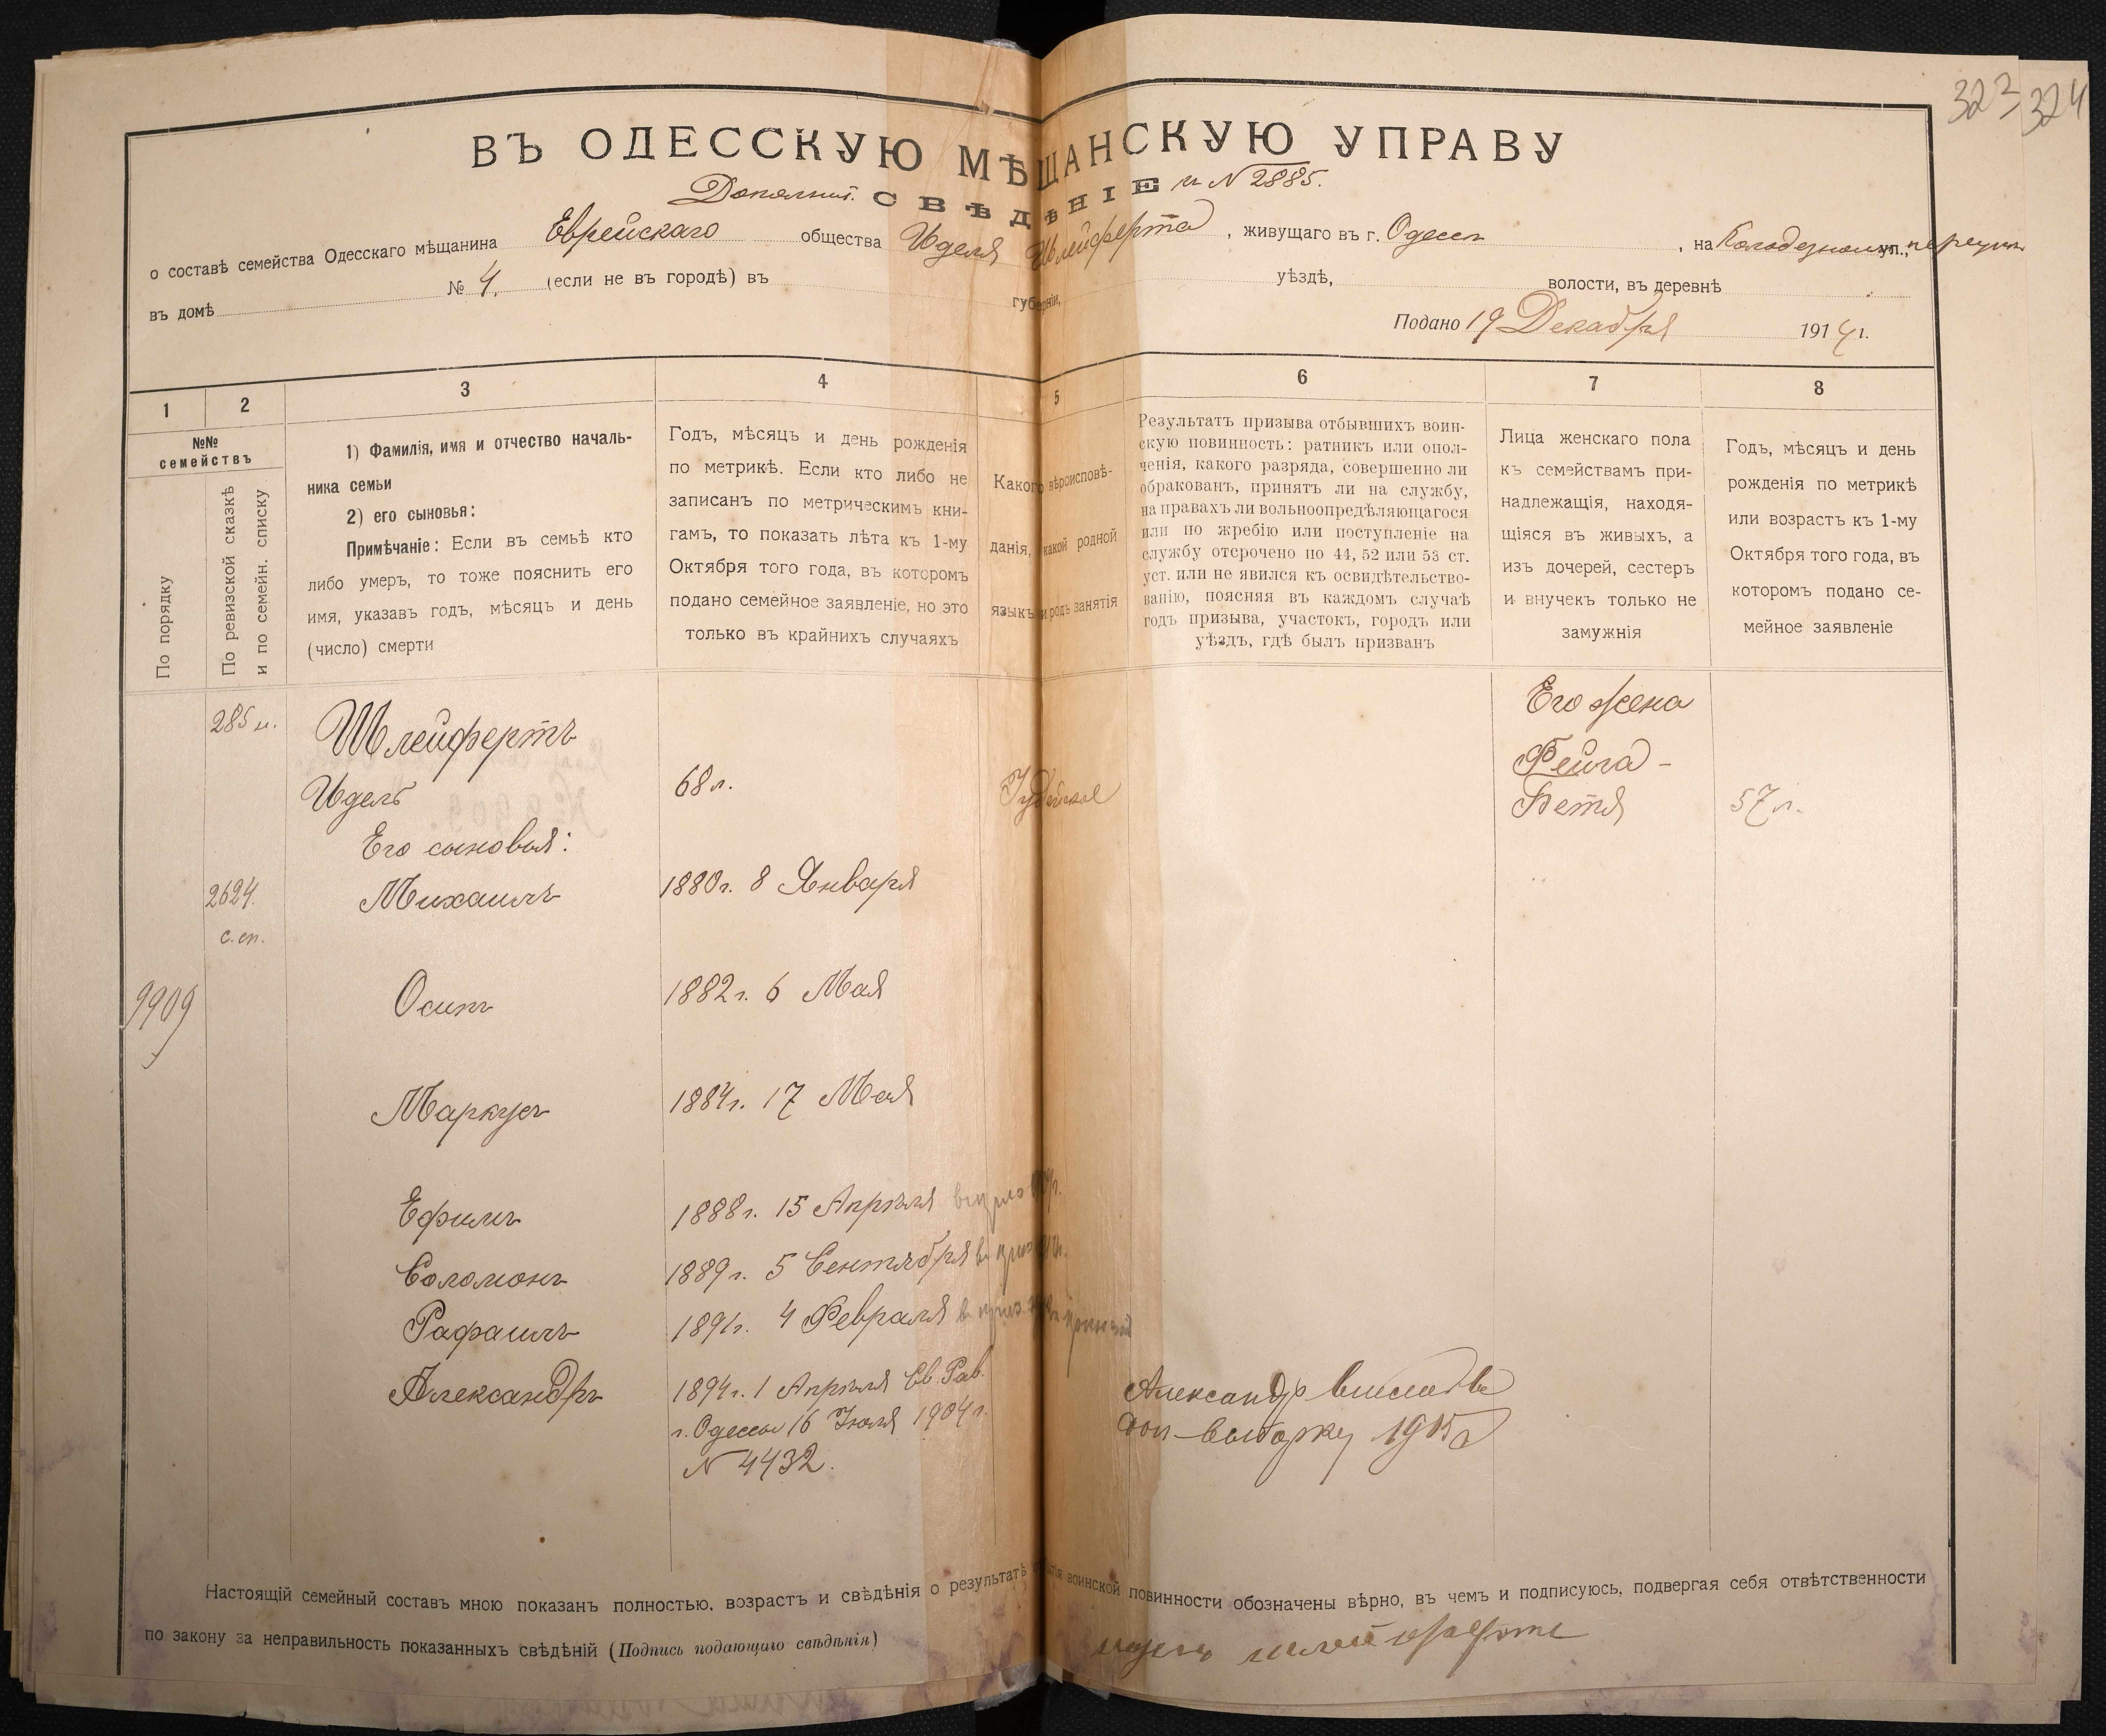 323 324
ВЪ ОДЕССКУЮ МѢЩАНСКУЮ УПРАВУ
Дополнит. СВѢДѢНІЕ къ N 2885.
о составѣ семейства Одесскаго мѣщанина Еврейскаго общества Иделя Шлейферта, живущаго въ г. Одессѣ, на Колодезномъ ул., переул.
въ домѣ № 4. (если не въ городѣ) въ губерніи, уѣздѣ, волости, въ деревнѣ
Подано 19 Декабря 1914 г.
1 2 3 4 5 6 7 8
№№ семействъ
По порядку
По ревизской сказкѣ
и по семейн. списку
1) Фамилія, имя и отчество началь-
ника семьи
2) его сыновья:
Примѣчаніе: Если въ семьѣ кто
либо умеръ, то тоже пояснить его
имя, указавъ годъ, мѣсяцъ и день
(число) смерти
Годъ, мѣсяцъ и день рожденія
по метрикѣ. Если кто либо не
записанъ по метрическимъ кни-
гамъ, то показать лѣта къ 1-му
Октября того года, въ которомъ
подано семейное заявленіе, но это
только въ крайнихъ случаяхъ
Какого вѣроисповѣ-
данія, какой родной
языкъ и родъ занятія
Результатъ призыва отбывшихъ воин-
скую повинность: ратникъ или опол-
ченія, какого разряда, совершенно ли
обракованъ, принятъ ли на службу,
на правахъ ли вольноопредѣляющагося
или по жребію или поступленіе на
службу отсрочено по 44, 52 или 53 ст.
уст. или не явился къ освидѣтельство-
ванію, поясняя въ каждомъ случаѣ
годъ призыва, участокъ, городъ или
уѣздъ, гдѣ былъ призванъ
Лица женскаго пола
къ семействамъ при-
надлежащія, находя-
щіяся въ живыхъ, а
изъ дочерей, сестеръ
и внучекъ только не
замужнія
Годъ, мѣсяцъ и день
рожденія по метрикѣ
или возрастъ къ 1-му
Октября того года, въ
которомъ подано се-
мейное заявленіе
285 н. Шлейфертъ Его жена
Фейга-
Идель 68 л. Іудейское Бетя 57 л.
Его сыновья:
2624. Михаилъ 1880 г. 8 Января
с. сп.
9909 Осипъ 1882 г. 6 Мая
Маркусъ 1884 г. 17 Мая
Ефимъ 1888 г. 15 Апрѣля
Соломонъ 1889 г. 5 Сентября
Рафаилъ 1891 г. 4 Февраля
Александръ 1894 г. 1 Апрѣля Св. Рав.
г. Одессы 16 Іюля 1904 г.
N 4432.
Александр
доп-выборку 1915
Настоящій семейный составъ мною показанъ полностью, возрастъ и свѣдѣнія о результатѣ воинской повинности обозначены вѣрно, въ чемъ и подписуюсь, подвергая себя отвѣтственности
по закону за неправильность показанныхъ свѣдѣній (Подпись подающаго свѣдѣнія)